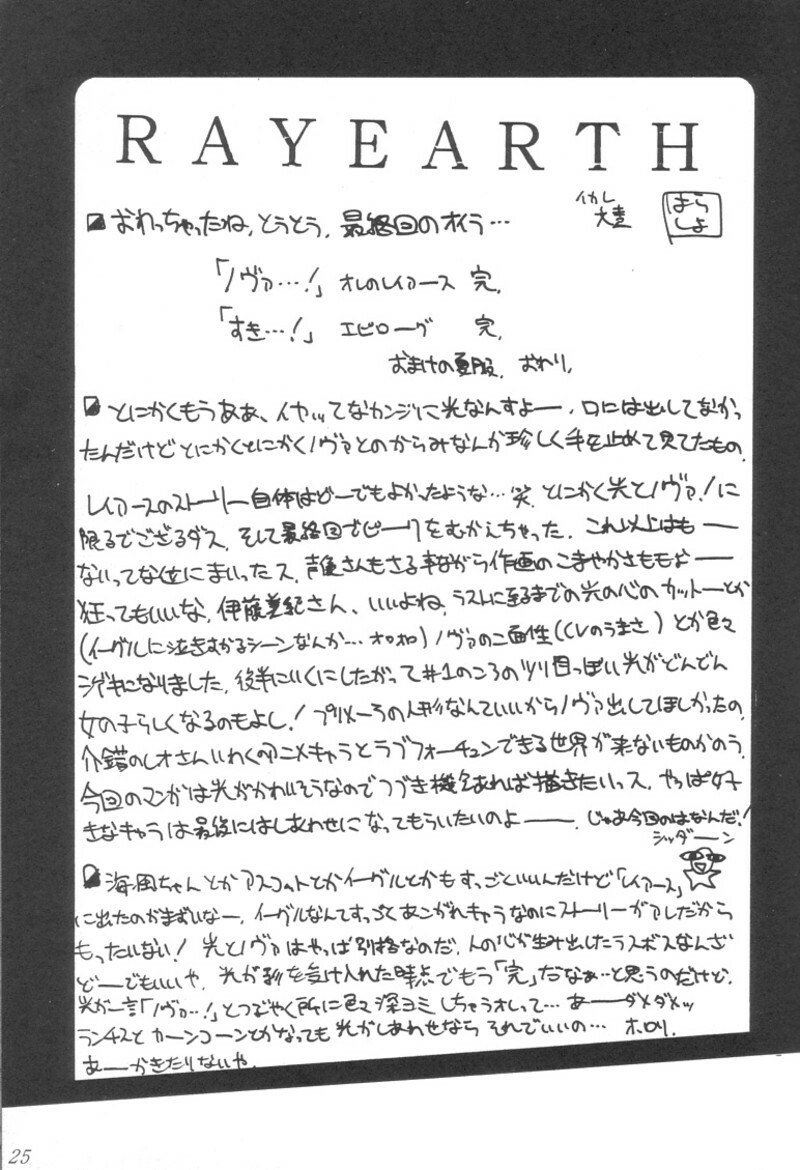 RAYEARTH
イカレ
大臣
はら
しょ
おわっちゃったね,とうとう,最終回のオイラ…
「ノヴァ…!」オレのレイアース 完,
「すき…!」エピローグ 完,
おまけの夏服, おわり,
とにかくもうああ、イヤッってなカンジに光なんすよー,口には出してなかっ
たんだけどとにかくとにかくノヴァとのからみなんか珍しく手を止めて見てたもの,
レイアースのストーリー自体はどーでもよかったような…笑, とにかく光とノヴァ!に
限るでござるダス, そして最終回でピークをむかえちゃった, これ以上はもー
ないってな位にまいったス, 声優さんもさる事ながら作画のこまやかさももおー
狂ってもいいな, 伊藤美紀さん、いいよね, ラストに至るまでの光の心のカットーとか
(イーグルに泣きすがるシーンなんか…オロオロ)ノヴァの二面性(CVのうまさ)とか色々
シゲキになりました, 後半にいくにしたがって#1のころのツリ目っぽい光がどんどん
女の子らしくなるのもよし!プリメーラの人形なんていいからノヴァ出してほしかったの,
介錯のしオさんいわくのアニメキャラとラブフォーチュンできる世界が来ないものかのう,
今回のマンガは光がかわいそうなのでつづき機会あれば描きたいっス, やっぱ好
きなキャラは最後にはしあわせになってもらいたいのよー, じゃあ今回のはなんだ!
シッダーン
海ちゃん風ちゃんとかアスコットとかイーグルとかもすっごといいんだけど「レイアース」
に出たのがまずいなー, イーグルなんてすっごくあこがれキャラなのにストーリーがアレだから
もったいない! 光とノヴァはやっぱ別格なのだ, 人の心が生み出したラスボスなんざ
どーでもいいや, 光が影を受け入れた時点でもう「完」だなぁ…と思うのだけど,
光が一言「ノヴァ…!」とつぶやく所に色々深ヨミしちゃうオレって… あーダメダメッ
ランチスとカーンコーンとかなっても光がしあわせなら それでいいの… ホロリ,
あーかきたりないや,
25